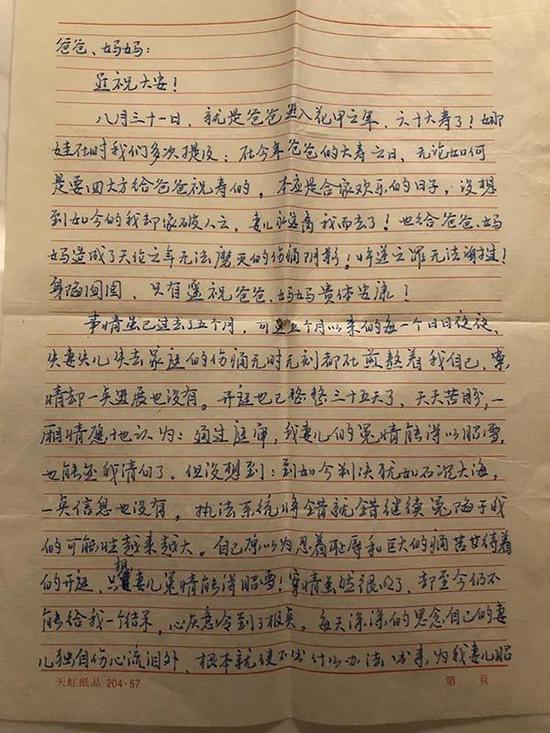 爸爸、妈妈:
遥祝大安!
八月三十一日,就是爸爸进入花甲之年,六十大寿了!娜
娃在时我们多次提及:在今年爸爸的大寿之日,无论如何
是要回大方给爸爸祝寿的,本应是合家欢乐的日子,没想
到如今的我却家破人亡,妻儿永远离我而去了!也给爸爸、妈
妈造成了天伦之年无法磨灭的伤痛阴影!忤逆之罪无法谢过!
身陷囹圄,只有遥祝爸爸、妈妈贵体安康!
事情虽已过去了五个月,可这五个月以来的每一个日日夜夜,
失妻失儿失去家庭的伤痛无时无刻都在煎熬着我自己,案
情却一点进展也没有。开庭也已整整三十五天了,天天苦盼,一
厢情愿地认为:通过庭审,我妻儿的冤情能得以昭雪,
也能还我清白了。但没想到:到如今判决犹如石沉大海,
一点信息也没有,执法系统将错就错继续冤陷于我
的可能性越来越大。自己原以为忍着耻辱和巨大的痛苦等待着
的开庭,只想妻儿冤情能得昭雪!案情虽然很明了,却至今仍不
能给我一个结果,心灰意冷到了极点。每天深深的思念自己的妻
儿独自伤心流泪外,根本就使不出什么办法出来,为我妻儿昭
天虹纸品 204-57 第 页